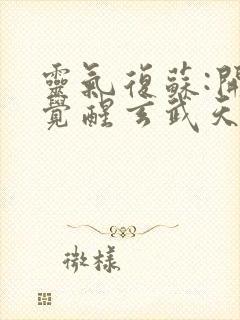 靈氣復蘇:開
覺醒玄武天
微樣